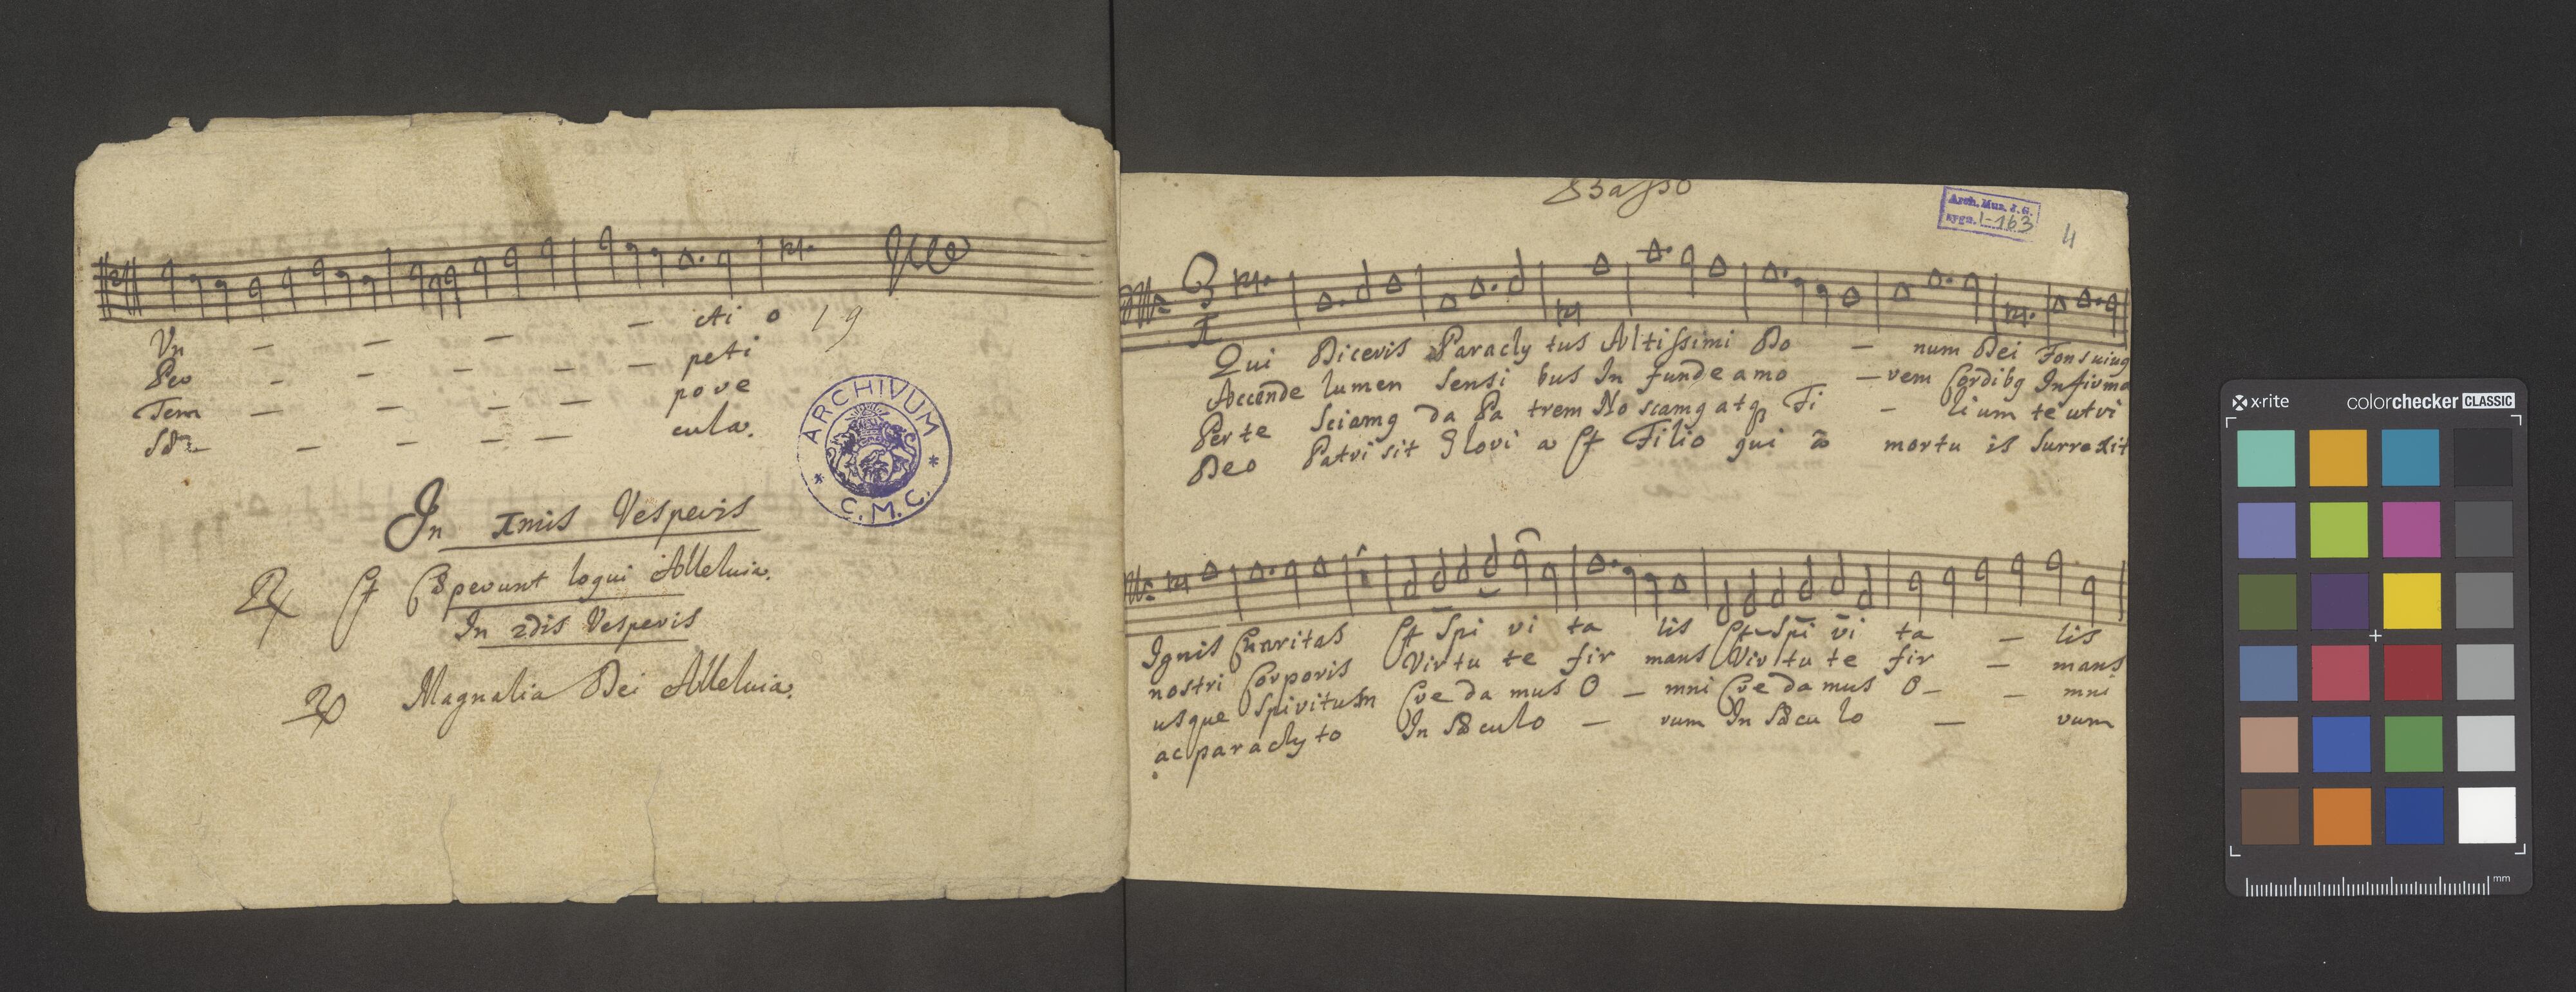 Vn - - - - cti o 19
Per - - - - - peti
Tem - - - - pore
Sæ - - - - cula.
ARCHIVUM
C. M. C.
In Imis Vesperis
Et Cœperunt loqui Alleluia.
In 2dis Vesperis
Magnalia Dei Alleluia.
Basso
Arch. Muz. J. G.
sygn. L-163
4
Qui Diceris Paracly tus Altissimi Do - num Dei Fons uiuq
Accende lumen Sensi bus In funde amo - rem Cordibq Infirma
Per te Sciamq da Pa trem No scamq atq Fi - li um te utri
Deo Patri sit Glori a Et Filio qui ā mortu is Surrexit
Ignis Charitas Et Spi ri ta lis Et Spi ri ta - lis
nostri Corporis Virtu te fir mans Virtu te fir - mans
usque Spiritum Cre da mus O - mni Cre da mus O - - mni
ac paraclyto In Sæ culo - rum In Sæcu lo - rum
x-rite colorchecker CLASSIC
mm